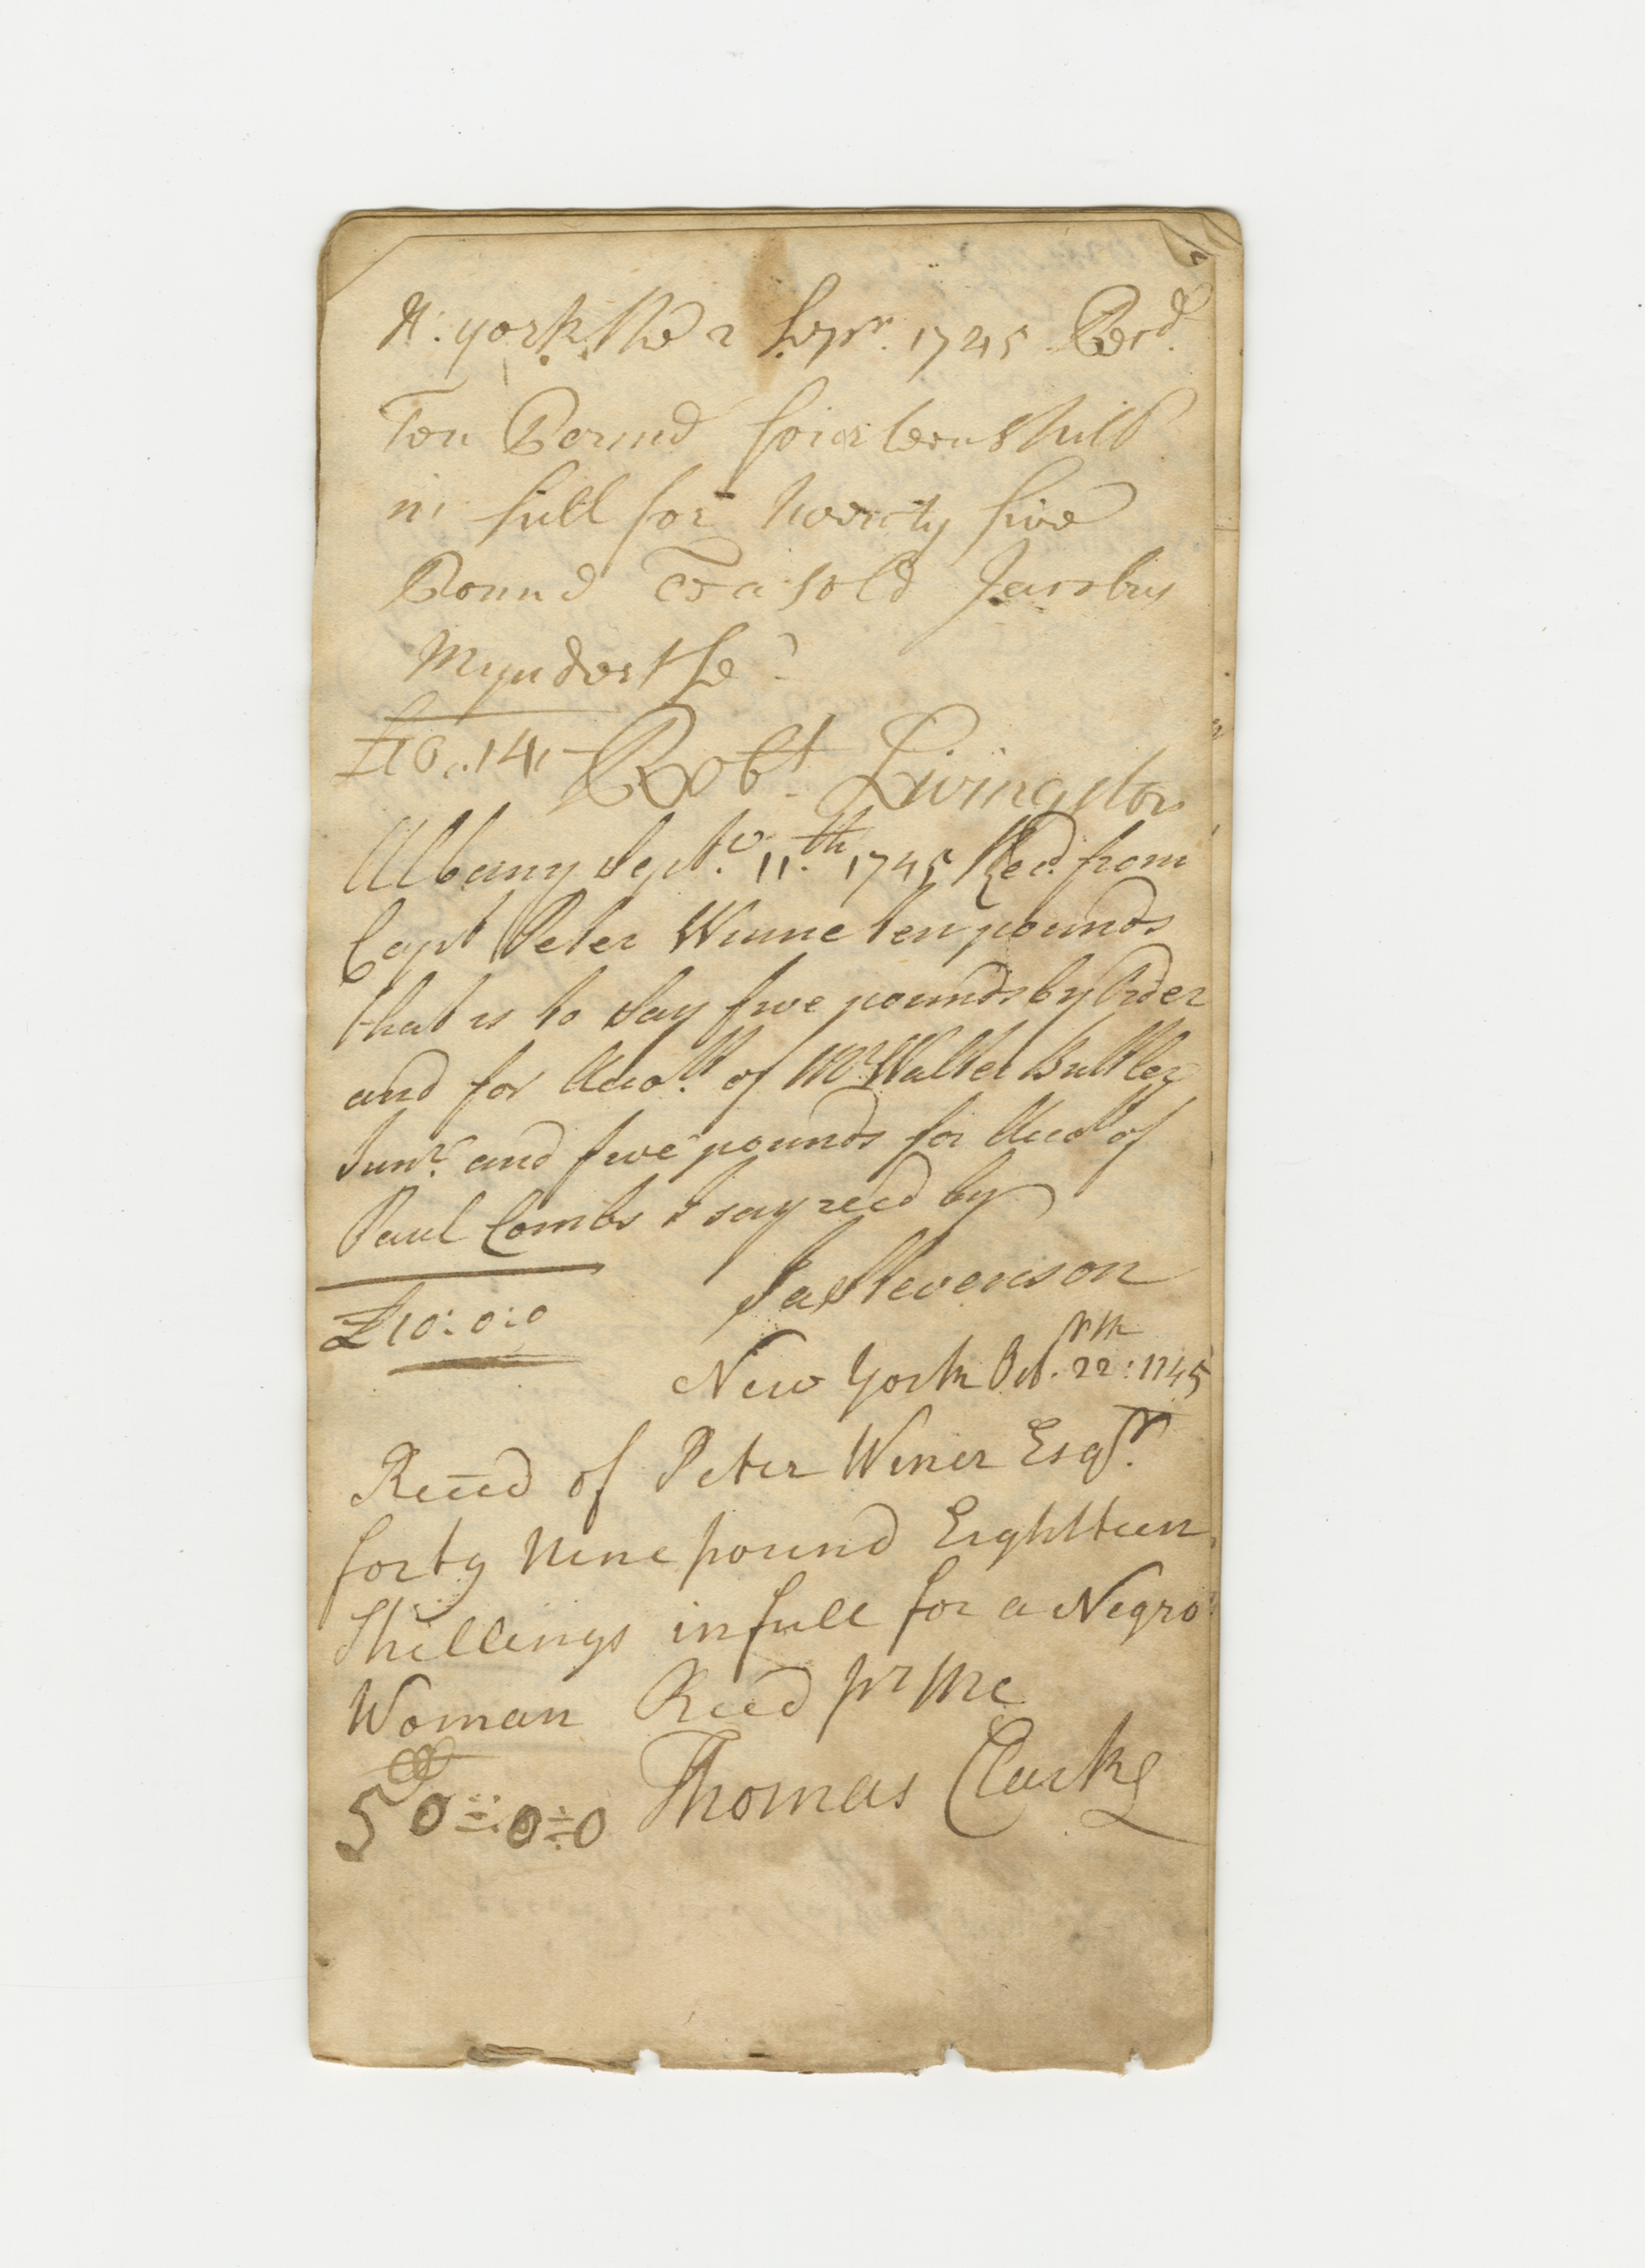 N: york the 2 Sepr. 1745 Recd.
Ten Pound fourteen shill
in full for twenty five
Pound Tea sold Jacobus
Mynderthe
£10..14,- Robt. Livingston
Albany Septr. 11.th 1745 Recd. from
Capt Peter Winne ten pounds
that is to say five pounds by Order
and for Accott. of Mr. Walter Buttler
Junr. and five pounds for Acct of
Paul Combs I say recd by
£10:0:0 Ja Stevenson
New York Oct. 22: 1745
Receed of Peter Winer Esqr.
forty Nine pound Eighthteen
Shillings in full for a Negro
Woman Reed pr Me
50=:0=0 Thomas Clarke